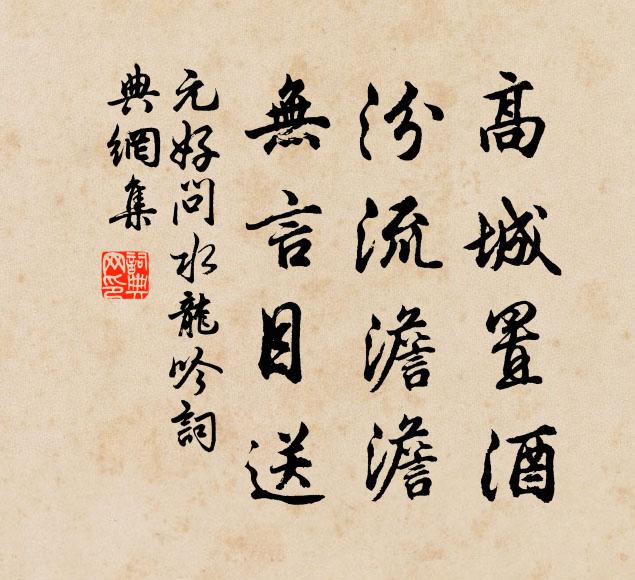 高城置酒
汾流澹澹
無言目送
元好問水龍吟詞
典網集
詞典网印